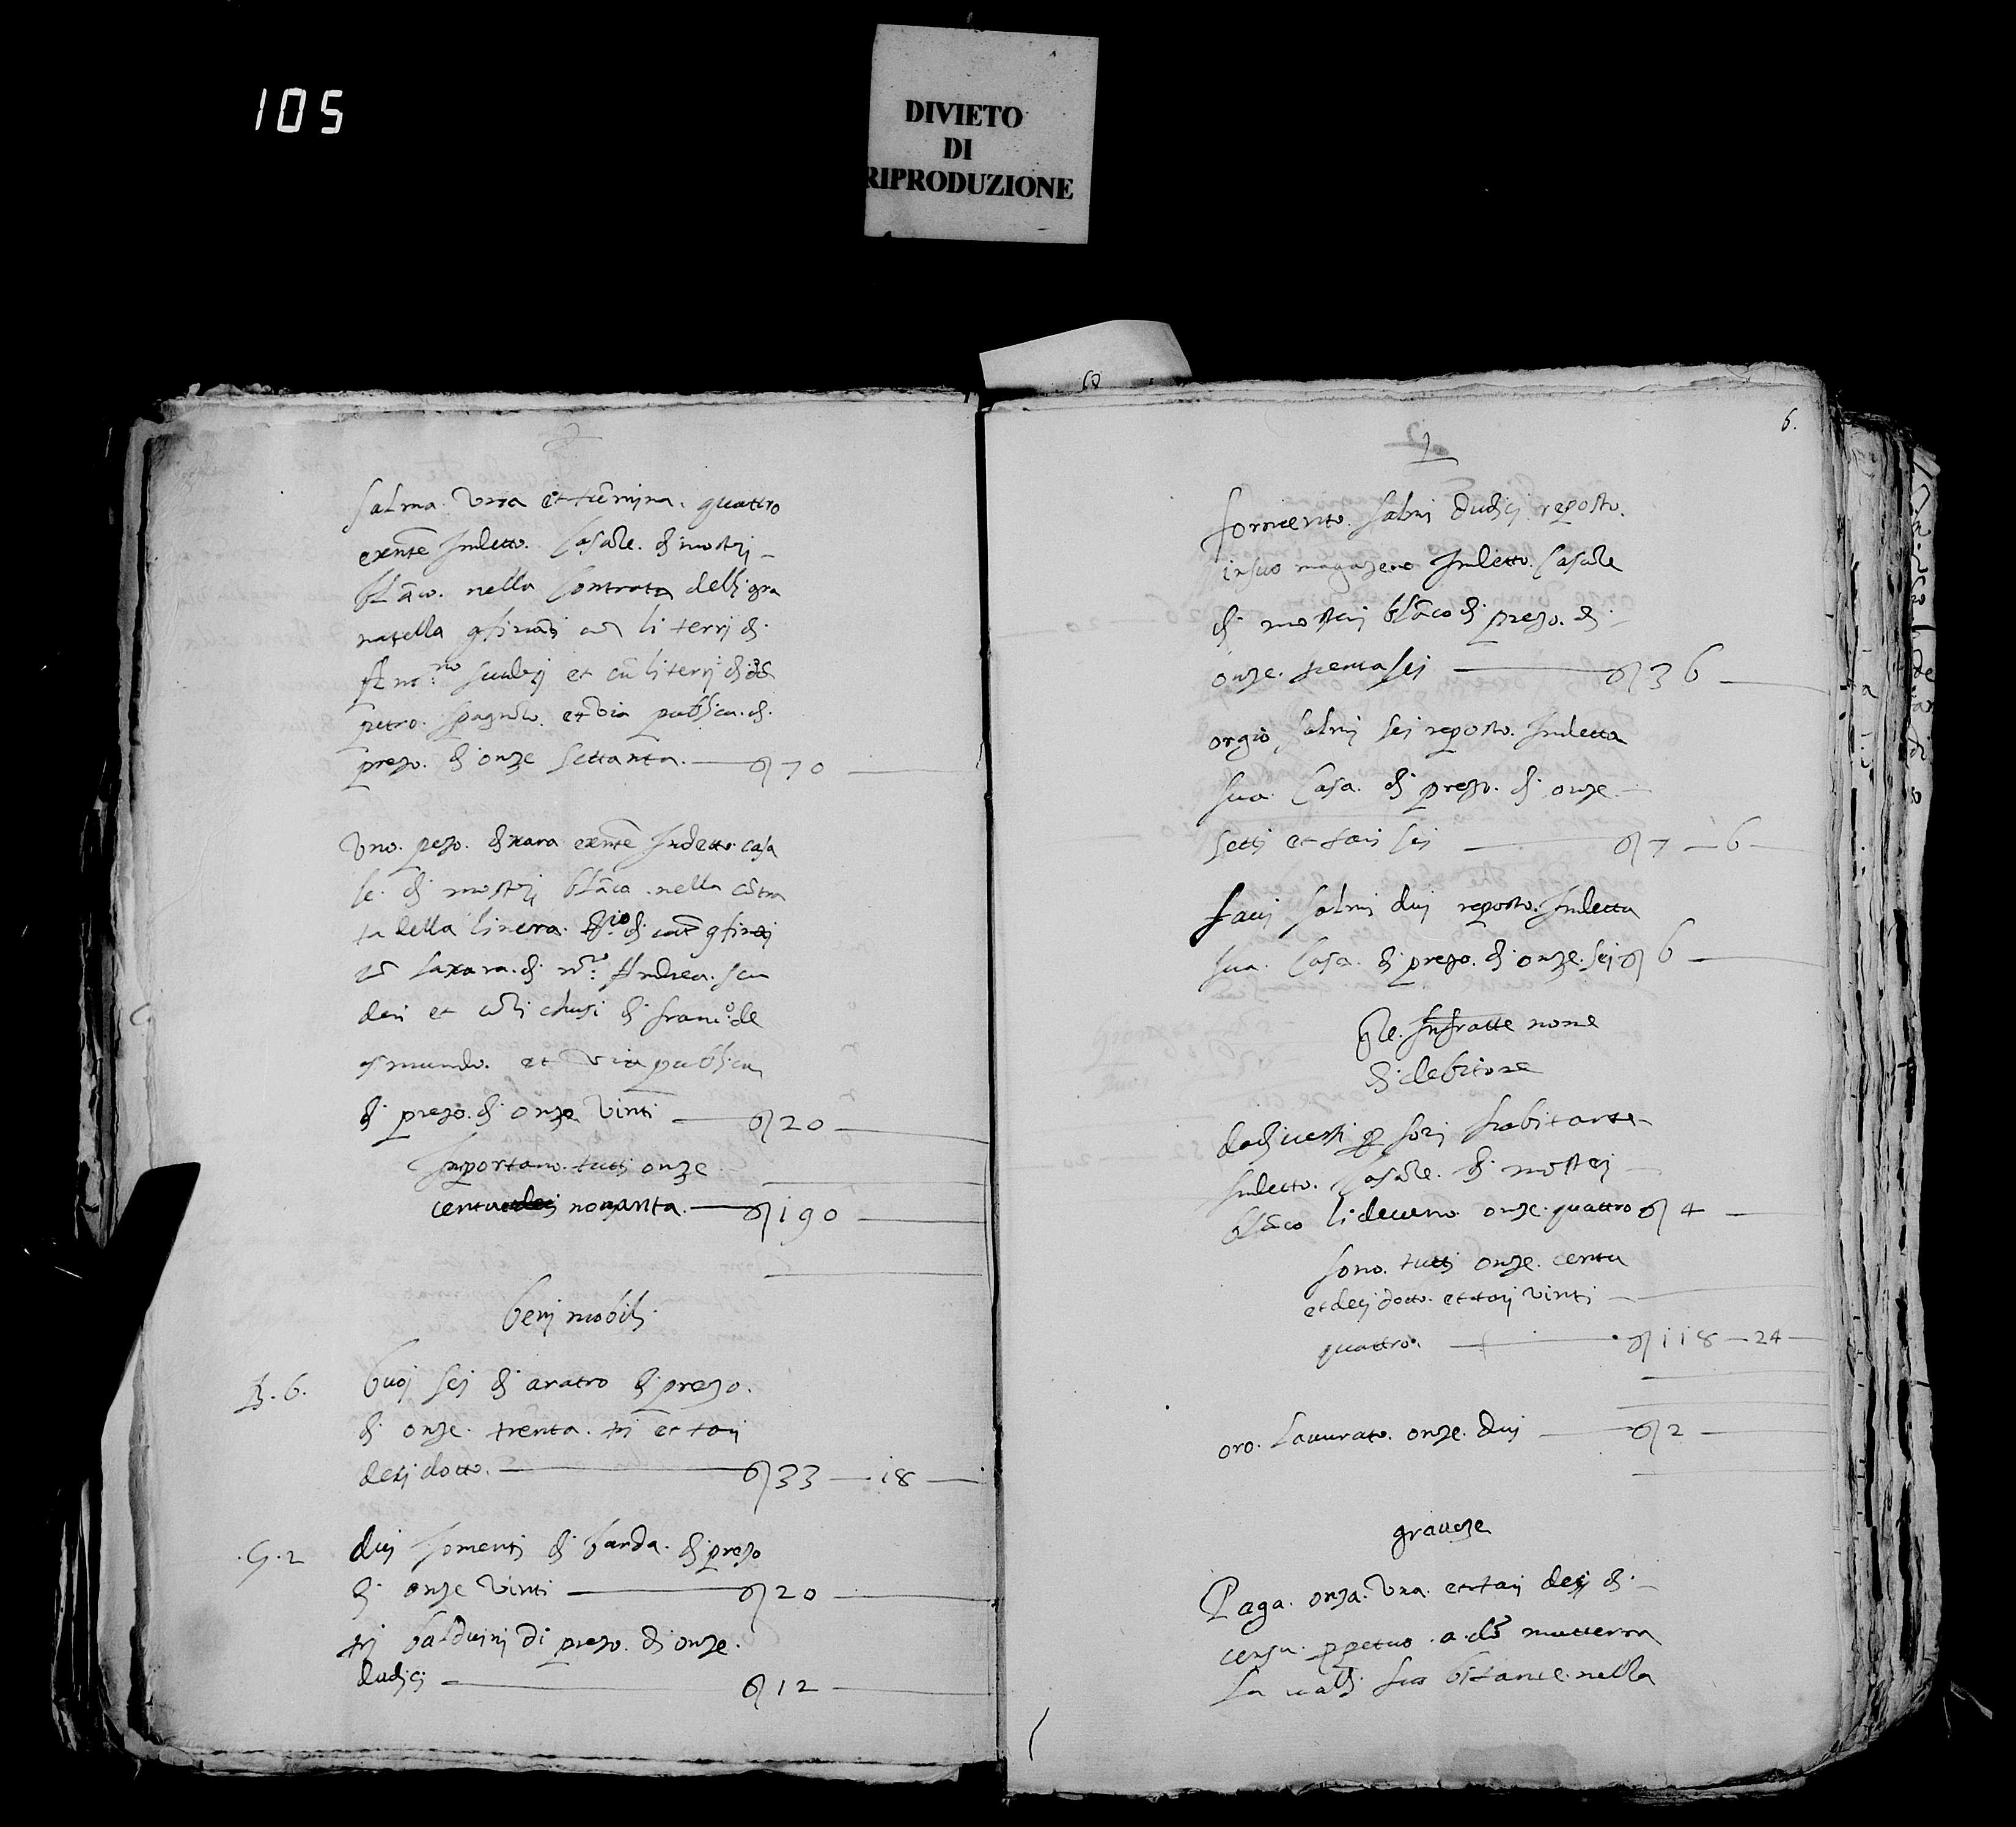 105
DIVIETO
DI
RIPRODUZIONE
salma una et tumina quattro
exnte Indetto Casale di mostri
blãco. nella Contrata delli gra
natella cu li terri di
scuderi et cũ li terri di
petro spagnolo et via publica di
prezo. di onze settanta. 70
Uno pezo. di xara exnte Indetto casa
le. di mostri blãco nella cũtra
ta della linera
laxara. di Andrea. scu
deri et cũ li chusi di franco de
osmundo. et via publica
di prezo. di onze vinti 20
Importano tutti onze
centu novanta. 190
beni mobili
B. 6. buoi sei di aratro di prezo.
di onze. trenta. tri et tari
deci dotto. 33 — 18
G. 2 dui Jomenti di barda. di prezo
di onze vinti 20
tri balduini di prezo. di onze.
dudici 12
6.
formento. salmi dudici reposto.
in suo magazeno Indetto. Casale
di mostri blãco di prezo. di
onze. trentasei 36
orgio salmi sei reposto. Indetta
sua Casa. di prezo. di onze
setti et tari sei 7 — 6
favi salmi dui reposto. Indetta
sua Casa. di prezo. di onze. sei 6
Infratte nome
di debitore
da diversi habitante
Indetto. Casale. di mostri
blãco li deveno onze. quattro 4
sono. tutti onze. centu
et deci dotto. et tari vinti
quattro. 118 — 24
oro. lavurato. onze. dui 2
graveze
Paga. onza. una. et tari deci di
censu. ppetuo. a
nella